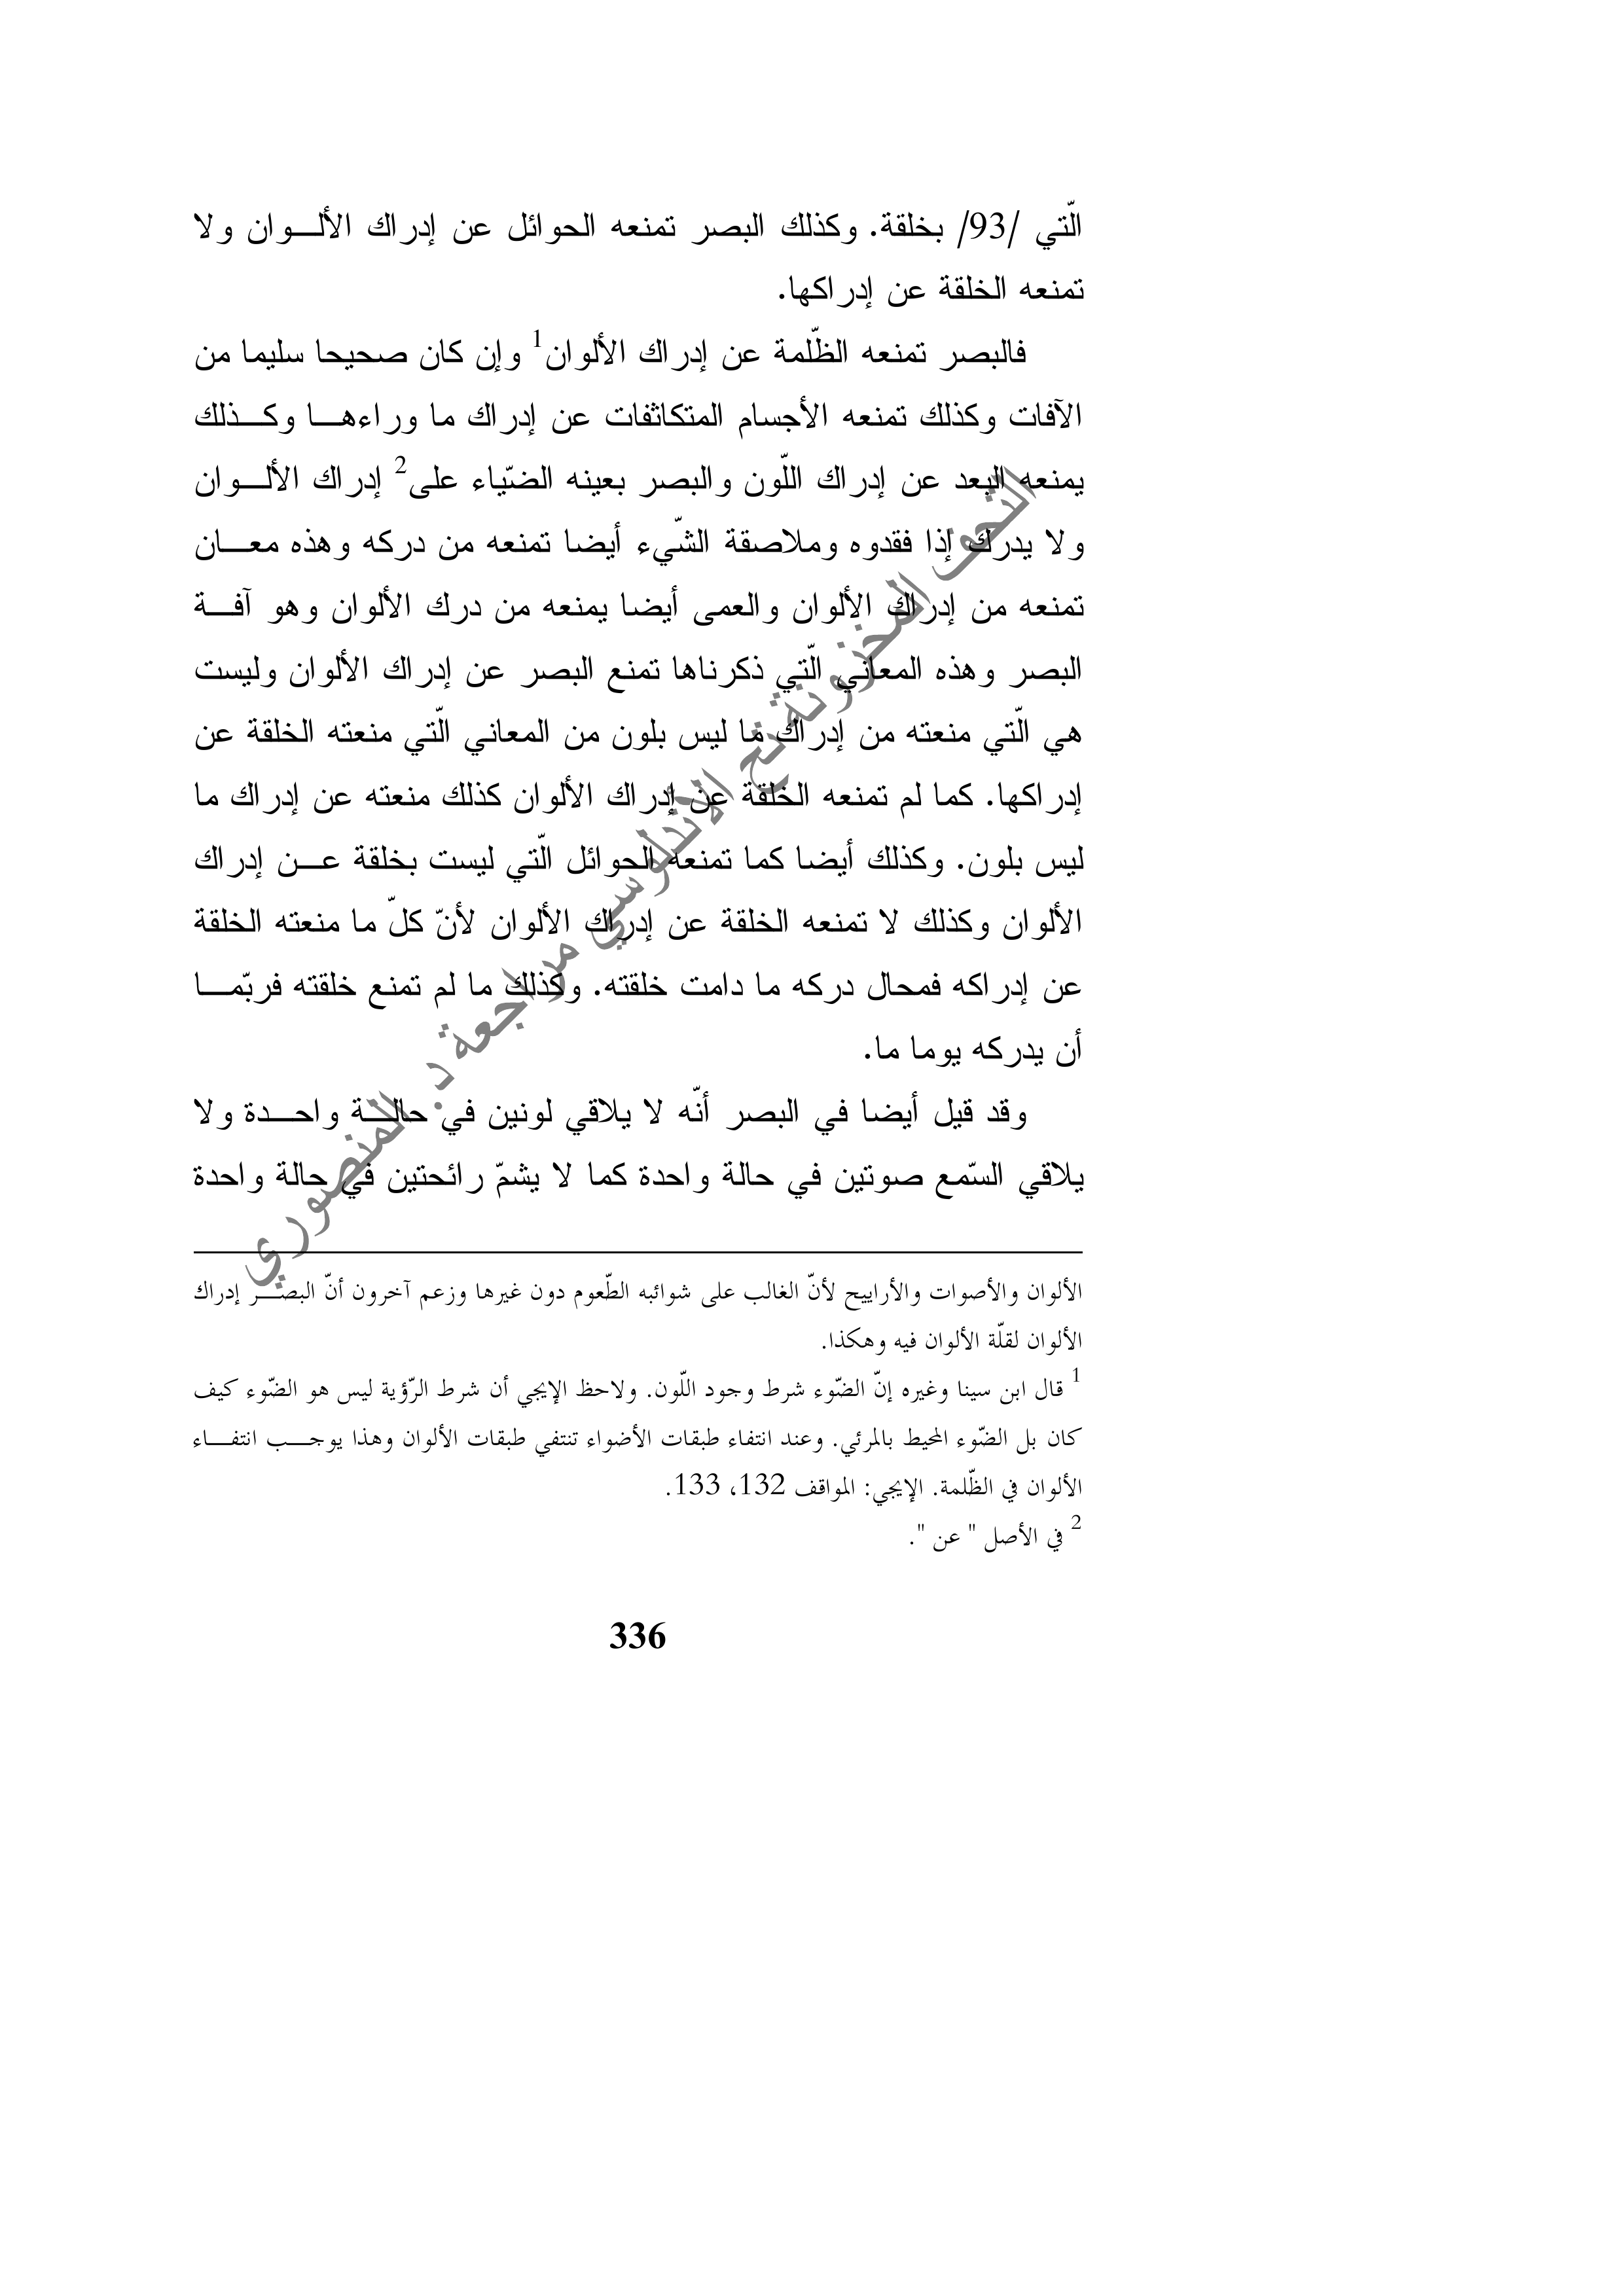 الّتي /93/ بخلقة. وكذلك البصر تمنعه الحوائل عن إدراك الألـــوان ولا
تمنعه الخلقة عن إدراكها.
فالبصر تمنعه الظّلمة عن إدراك الألوان1 وإن كان صحيحا سليما من
الآفات وكذلك تمنعه الأجسام المتكاثفات عن إدراك ما وراءهـــا وكـــذلك
يمنعه البعد عن إدراك اللّون والبصر بعينه الضّياء على2 إدراك الألـــوان
ولا يدرك إذا فقدوه وملاصقة الشّيء أيضا تمنعه من دركه وهذه معـــان
تمنعه من إدراك الألوان والعمى أيضا يمنعه من درك الألوان وهو آفـــة
البصر وهذه المعاني الّتي ذكرناها تمنع البصر عن إدراك الألوان وليست
هي الّتي منعته من إدراك ما ليس بلون من المعاني الّتي منعته الخلقة عن
إدراكها. كما لم تمنعه الخلقة عن إدراك الألوان كذلك منعته عن إدراك ما
ليس بلون. وكذلك أيضا كما تمنعه الحوائل الّتي ليست بخلقة عـــن إدراك
الألوان وكذلك لا تمنعه الخلقة عن إدراك الألوان لأنّ كلّ ما منعته الخلقة
عن إدراكه فمحال دركه ما دامت خلقته. وكذلك ما لم تمنع خلقته فربّمـــا
أن يدركه يوما ما.
وقد قيل أيضا في البصر أنّه لا يلاقي لونين في حالـــة واحـــدة ولا
يلاقي السّمع صوتين في حالة واحدة كما لا يشمّ رائحتين في حالة واحدة
الألوان والأصوات والأراييح لأنّ الغالب على شوائبه الطّعوم دون غيرها وزعم آخرون أنّ البصـــر إدراك
الألوان لقلّة الألوان فيه وهكذا.
1 قال ابن سينا وغيره إنّ الضّوء شرط وجود اللّون. ولاحظ الإيجي أن شرط الرّؤية ليس هو الضّوء كيف
كان بل الضّوء المحيط بالمرئي. وعند انتفاء طبقات الأضواء تنتفي طبقات الألوان وهذا يوجـــب انتفـــاء
الألوان في الظّلمة. الإيجي: المواقف 132، 133.
2 في الأصل " عن ".
336
التحف المخزونة تح الاندلوسي مراجعة د. المنصوري